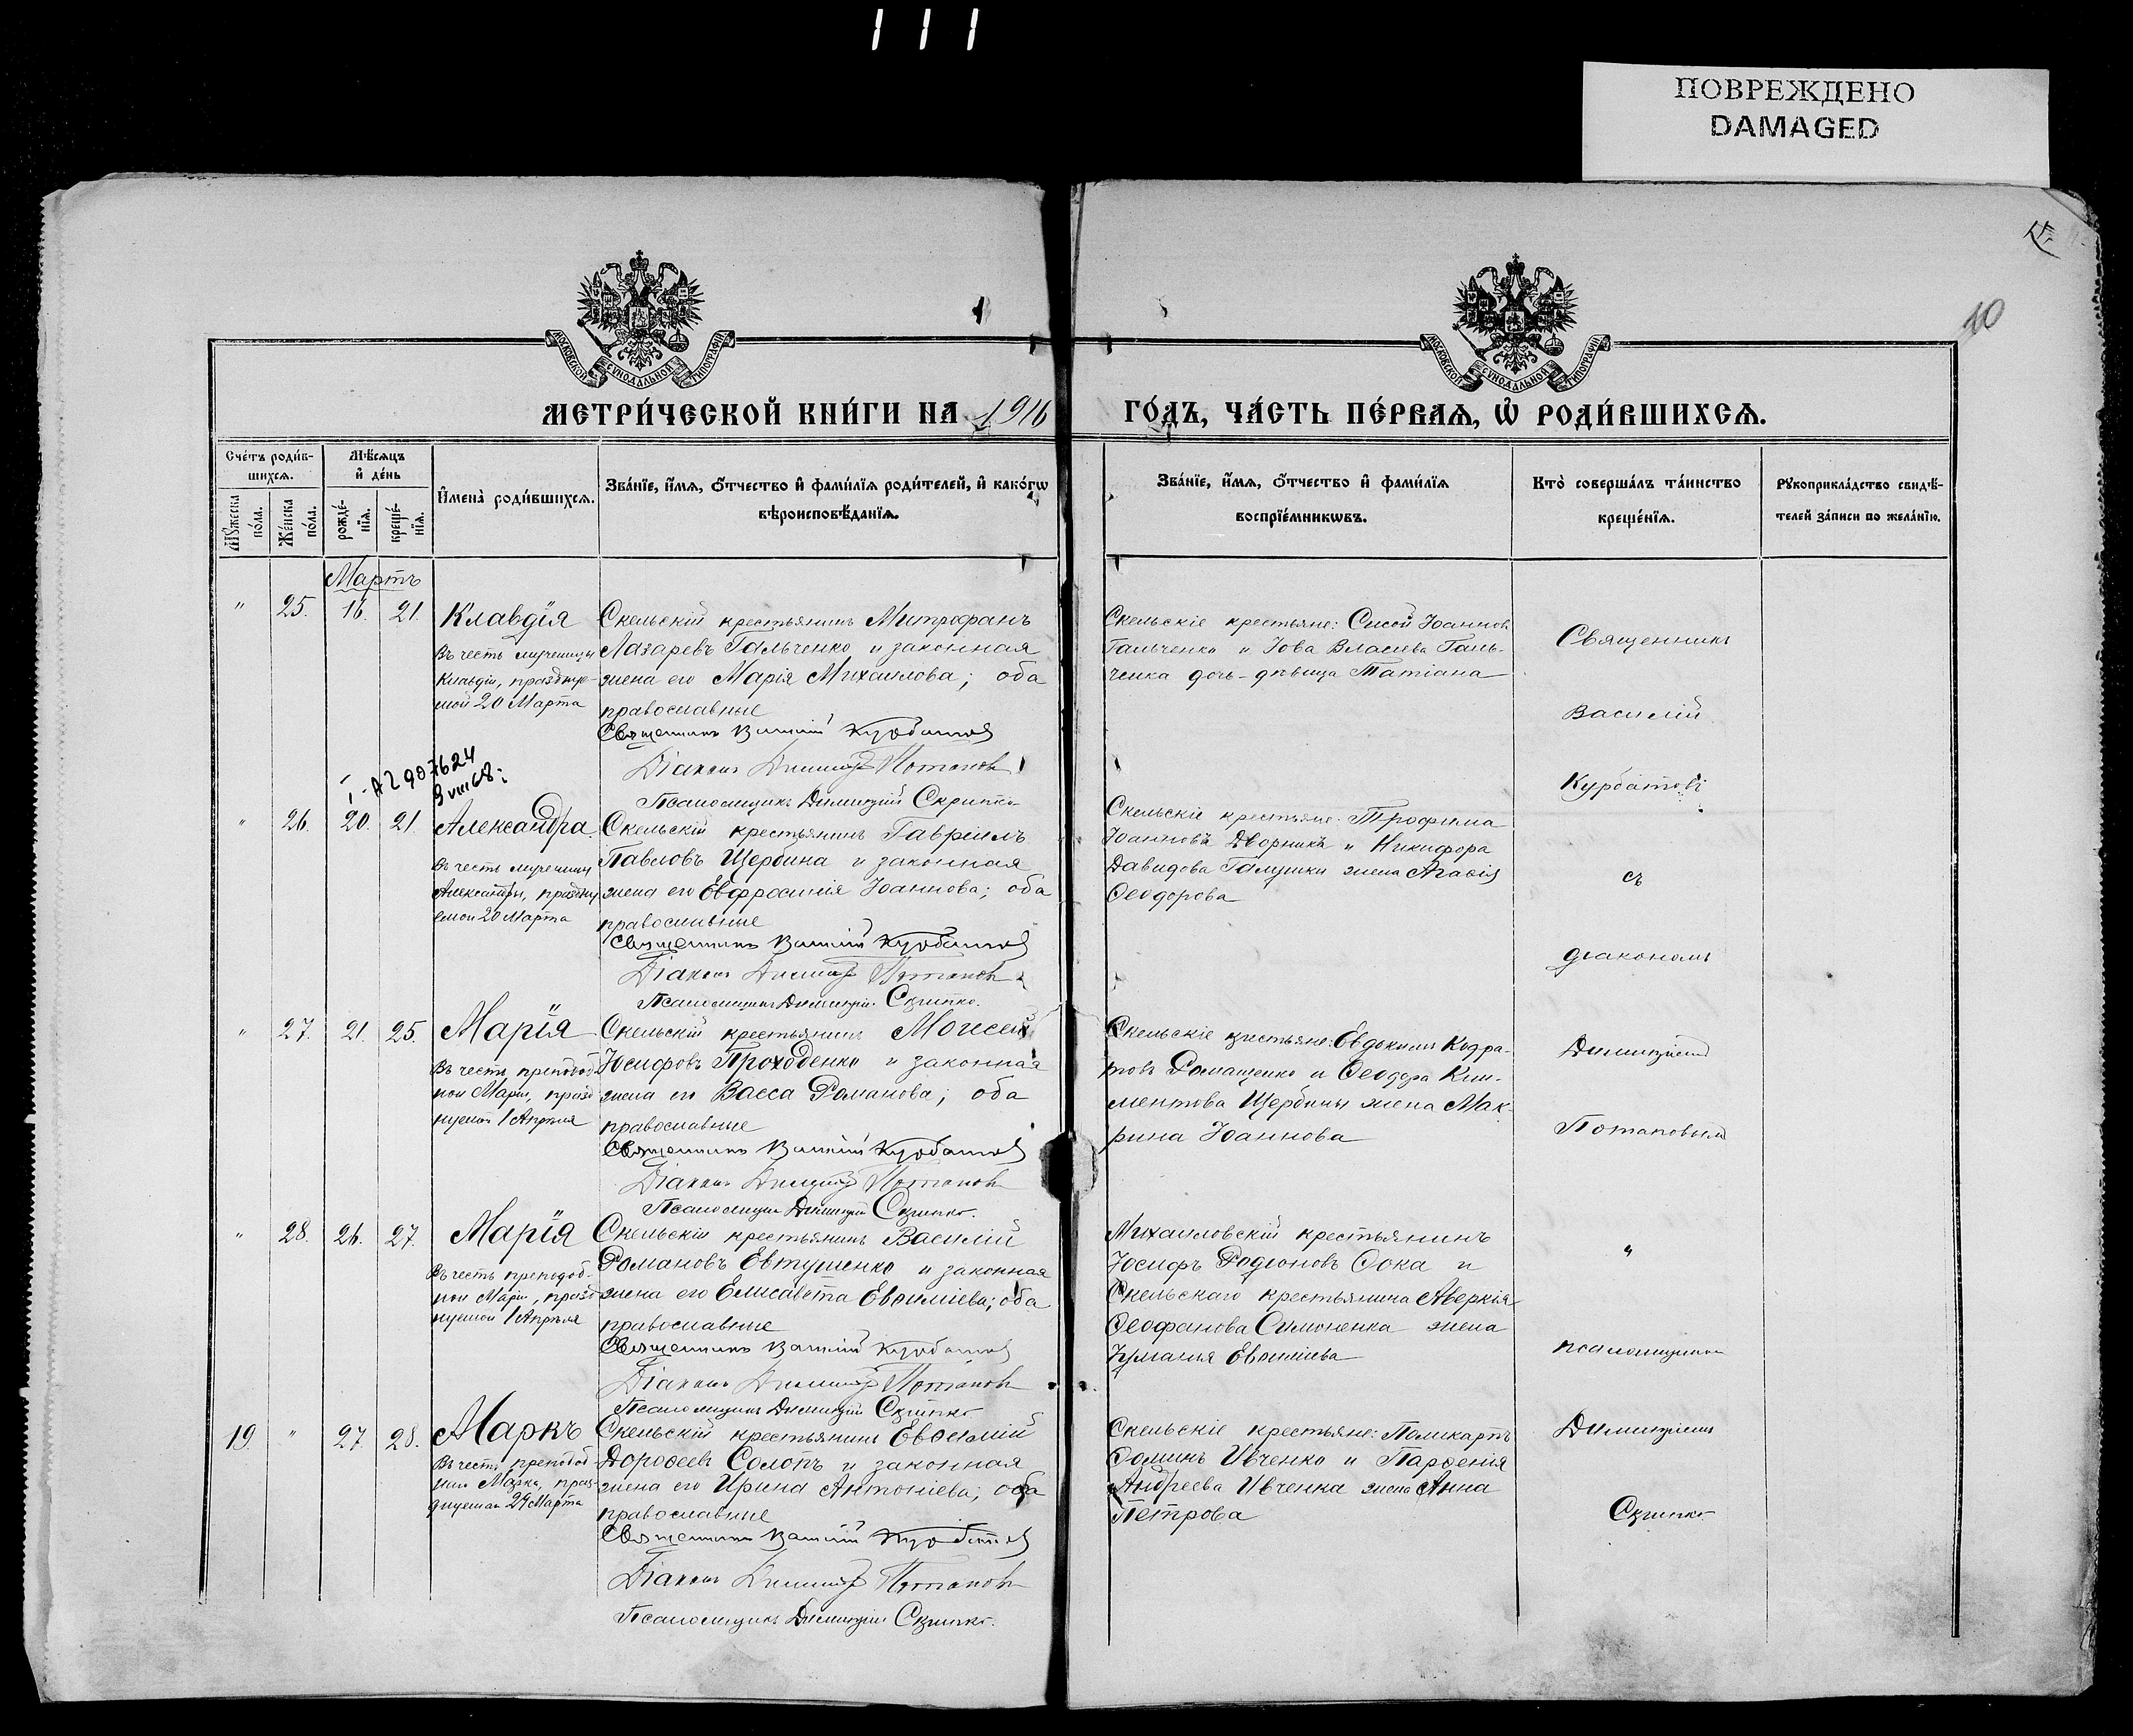 ПОВРЕЖДЕНО
DAMAGED
10
МОСКОВСКОЙ СѴНОДАЛЬНОЙ ТИПОГРАФІИ
МОСКОВСКОЙ СѴНОДАЛЬНОЙ ТИПОГРАФІИ
МЕТРИ́ЧЕСКОЙ КНИ́ГИ НА 1916
ГО́ДЪ, ЧА́СТЬ ПЕ́РВАѦ, Ѡ҆ РОДИ́ВШИХСѦ.
Сче́тъ роди́в-
шихсѧ.
Мѣ́сѧцъ
и҆ де́нь
Мꙋ́жеска
по́ла.
Же́нска
по́ла.
рожде́-
нїѧ.
креще́-
нїѧ.
И҆мена̀ роди́вшихсѧ.
Зва́нїе, и҆́мѧ, ѻ҆́тчество и҆ фами́лїѧ роди́телей, и҆ како́гѡ
вѣроисповѣ́данїѧ.
Зва́нїе, и҆́мѧ, ѻ҆́тчество и҆ фами́лїѧ
воспрїе́мникѡвъ.
Кто̀ соверша́лъ та́инство
креще́нїѧ.
Рꙋкоприкла́дство свидѣ́-
телей за́писи по жела́нїю.
Мартъ
" 25. 16. 21. Клавдія
Въ честь мученицы
Клавдіи, празднуе-
мой 20 Марта
Скельскій крестьянинъ Митрофанъ
Лазаревъ Гальченко и законная
жена его Марія Михаилова; оба
православные
Священникъ Василій Курбатов
Діаконъ Димитрій Потапов
Псаломщикъ Димитрій Скрипко
Скельскіе крестьяне: Сисой Іоаннов
Гальченко и Іова Власіева Галь-
ченка дочь-дѣвица Татіана
I-А2 907624
9 VIII 68
" 26. 20. 21. Александра
Въ честь мученицы
Александры, праздну
емой 20 Марта
Скельскій крестьянинъ Гавріилъ
Павловъ Щербина и законная
жена его Евфросинія Іоаннова; оба
православные
Священникъ Василій Курбатов
Діаконъ Димитрій Потапов
Псаломщикъ Димитрій Скрипко.
Скельскіе крестьяне: Трофима
Іоаннова Дворникъ и Никифора
Давидова Галушки жена Агаѳія
Ѳеодорова
" 27. 21. 25. Марія
Въ честь преподоб
ной Маріи, празд
нуемой 1 Апрѣля
Скельскій крестьянинъ Моисей
Іосифовъ Проходенко и законная
жена его Васса Романова; оба
православные
Священникъ Василій Курбатов
Діаконъ Димитрій Потапов
Псаломщикъ Димитрій Скрипко.
Скельскіе крестьяне: Евдокимъ Кодра-
товъ Ромащенко и Ѳеодора Кли-
ментова Щербины жена Мак-
рина Іоаннова
" 28. 26. 27. Марія
Въ честь преподоб-
ной Маріи, празд
нуемой 1 Апрѣля
Скельскій крестьянинъ Василій
Романовъ Евтушенко и законная
жена его Елисавета Евѳиміева; оба
православные
Священникъ Василій Курбатов
Діаконъ Димитрій Потапов
Псаломщикъ Димитрій Скрипко
Михаиловскій крестьянинъ
Іосифъ Родіоновъ Сока и
Скельскаго крестьянина Аверкія
Ѳеофанова Симоненка жена
Іуліанія Евѳиміева
19. " 27. 28. Маркъ
Въ честь преподоб
наго Марка, праз-
днуемаго 29 Марта
Скельскій крестьянинъ Евѳимій
Дороѳеевъ Солопъ и законная
жена его Ирина Антоніева; оба
православные
Священникъ Василій Курбатов
Діаконъ Димитрій Потапов
Псаломщикъ Димитрій Скрипко.
Скельскіе крестьяне: Поликарпъ
Ѳоминъ Ивченко и Парѳенія
Андреева Ивченка жена Анна
Петрова
Священникъ
Василій
Курбатовъ
съ
діакономъ
Димитріемъ
Потаповымъ
и
псаломщикомъ
Димитріемъ
Скрипко